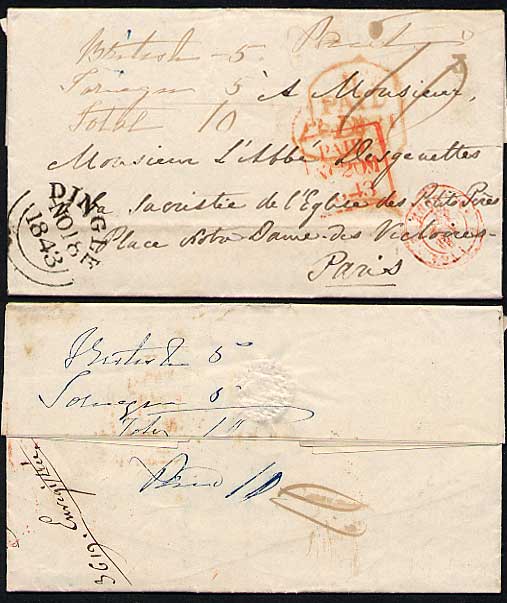 British - 5 Paid
Foreign 5 A Monsieur,
Total 10
PAID
Monsieur L'Abbé Desgenettes
PAID
20 NO
43
La Sacristie de l'Eglise des Petits Pères
Place Notre Dame des Victoires-
Paris
DINGLE
NO 18
1843
British 5
Foreign 5
Total 10
Paid 10
3619.